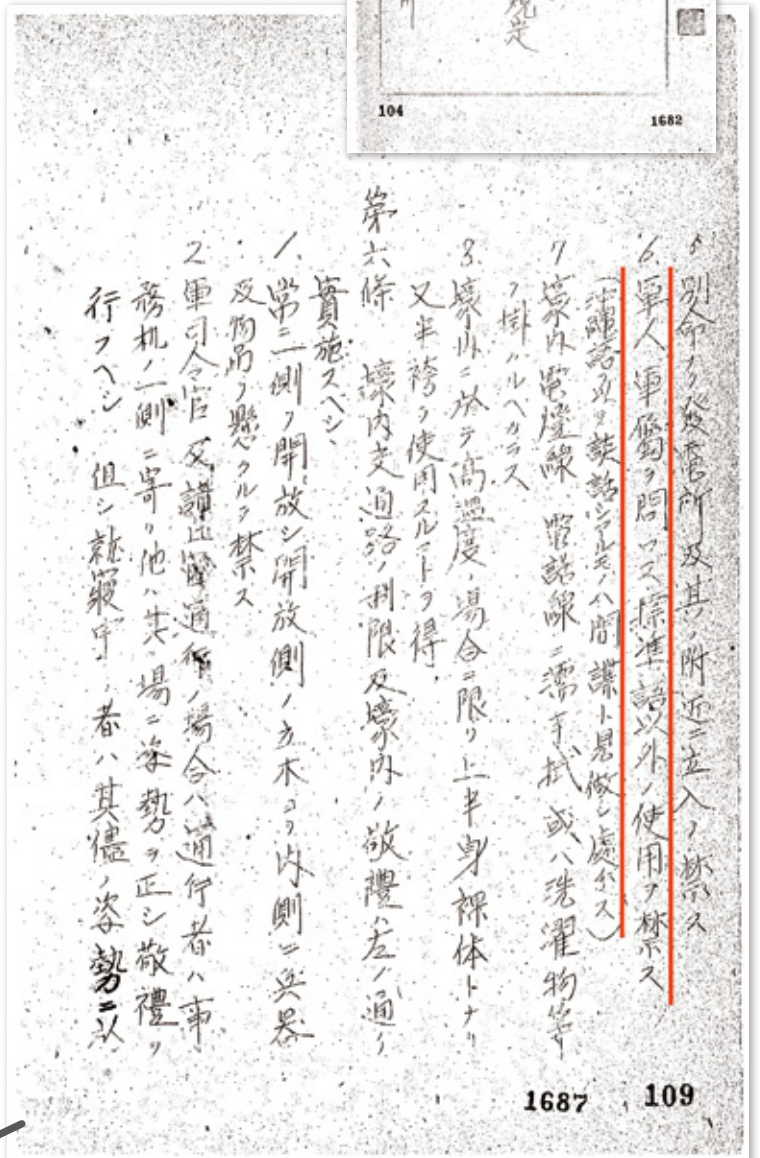 規定
104
1682
5、別命ナク發電所及其ノ附近ニ立入ヲ禁ス
6、軍人軍属ヲ問ハス標準語以外ノ使用ヲ禁ス
(沖縄語ヲ以テ談話シアルモノハ間諜ト見做シ處分ス)
7、壕内電燈線、電話線ニ濡手拭或ハ洗濯物等
ヲ掛クルヘカラス
8、壕内ニ於テ高温度ノ場合ニ限リ上半身裸体トナリ
又半袴ヲ使用スルコトヲ得
第六條 壕内交通路ノ制限及壕内ノ敬禮ハ左ノ通リ
實施スヘシ、
1、常ニ一側ヲ開放シ開放側ノ立木ヨリ内側ニ兵器
及物品ヲ懸クルヲ禁ス
2、軍司令官及 通行ノ場合ハ通行者ハ事
務机ノ一側ニ寄リ他ハ其ノ場ニ姿勢ヲ正シ敬禮ヲ
行フヘシ 但シ就寢中ノ者ハ其儘ノ姿勢ニ以
1687
109